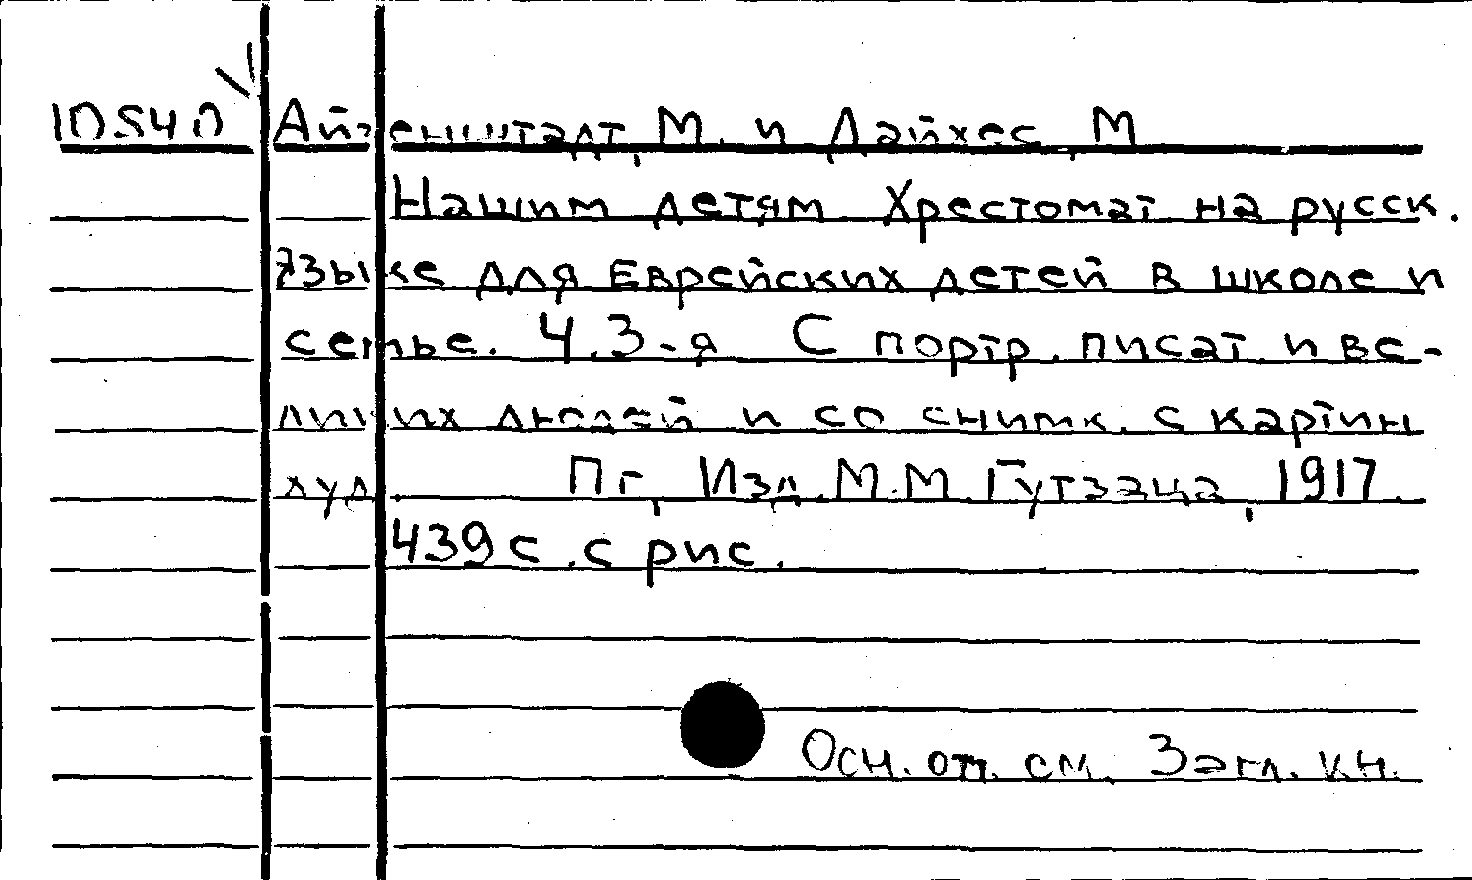 10540 Айзенштадт, М. и Дайхес, М
Нашим детям Хрестомат на русск.
языке для Еврейских детей в школе и
семье. Ч.3-я С портр. писат. и ве-
ликих людей и со снимк. с картин
худ. Пг, Изд. М.М. Гутзаца, 1917.
439 с. с рис.
Осн. оп. см. Загл. кн.